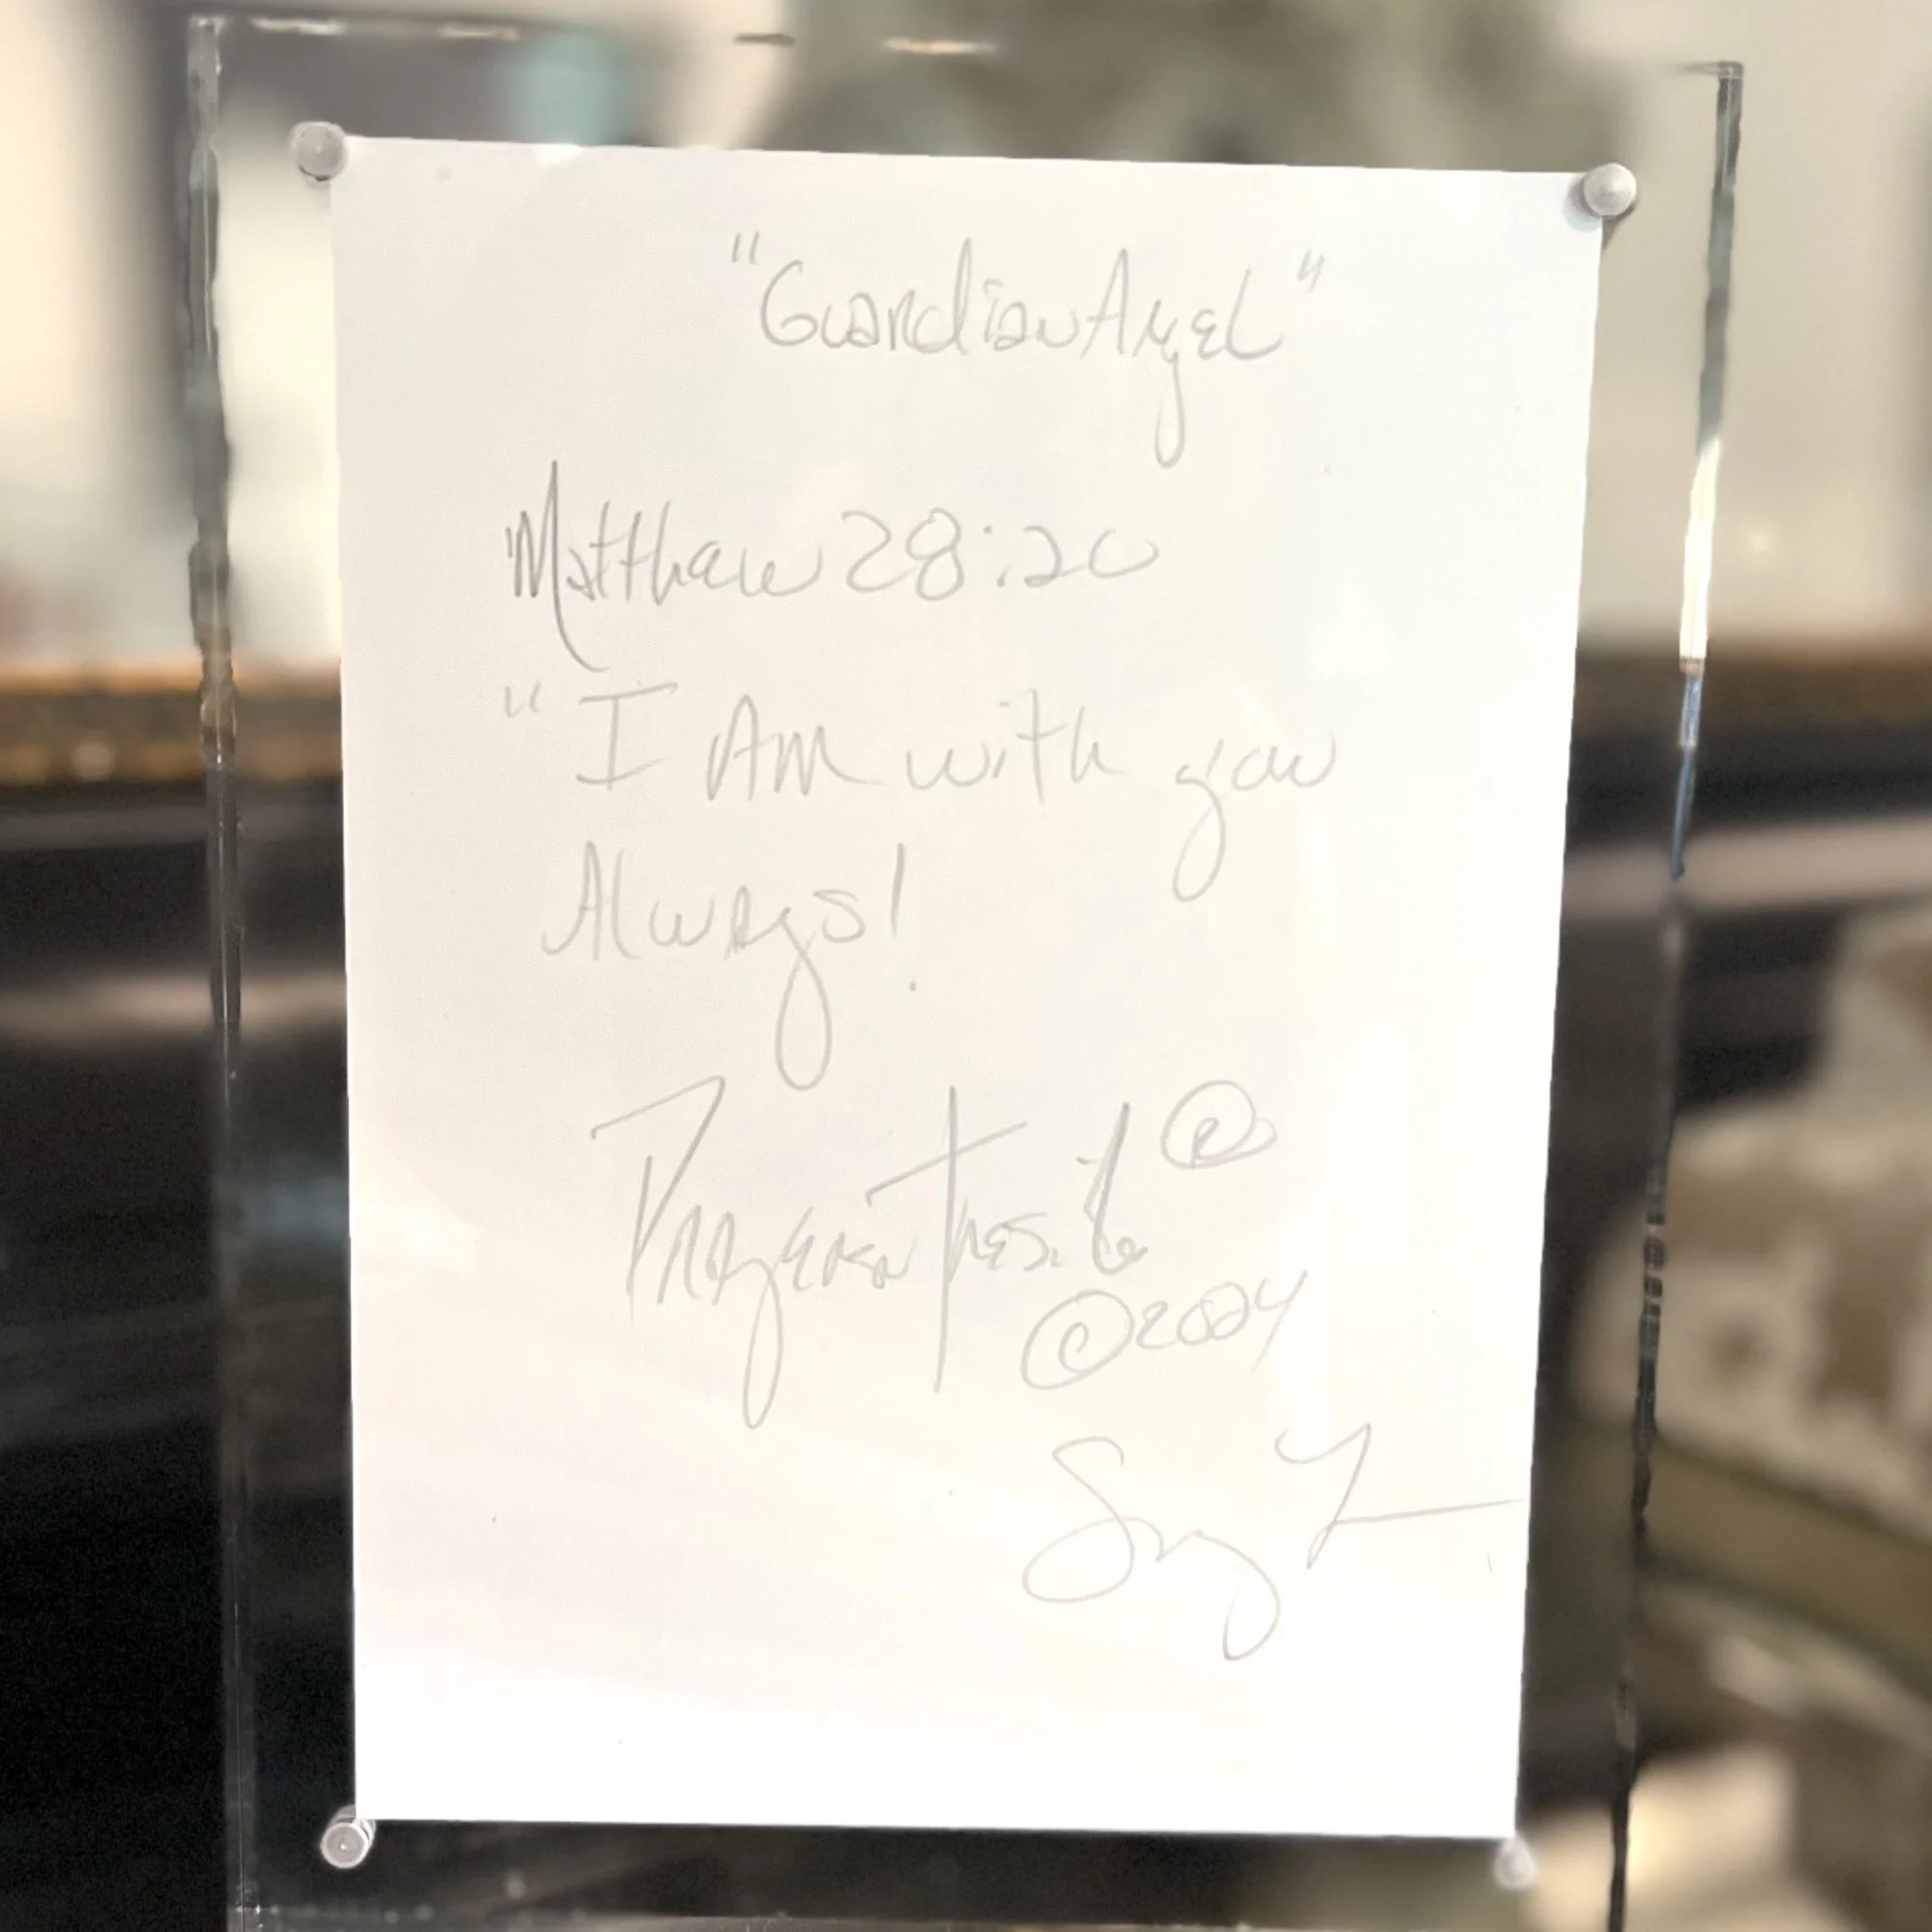 "Guardian Angel"
Matthew 28:20
"I AM with you
Always!
®
©2024